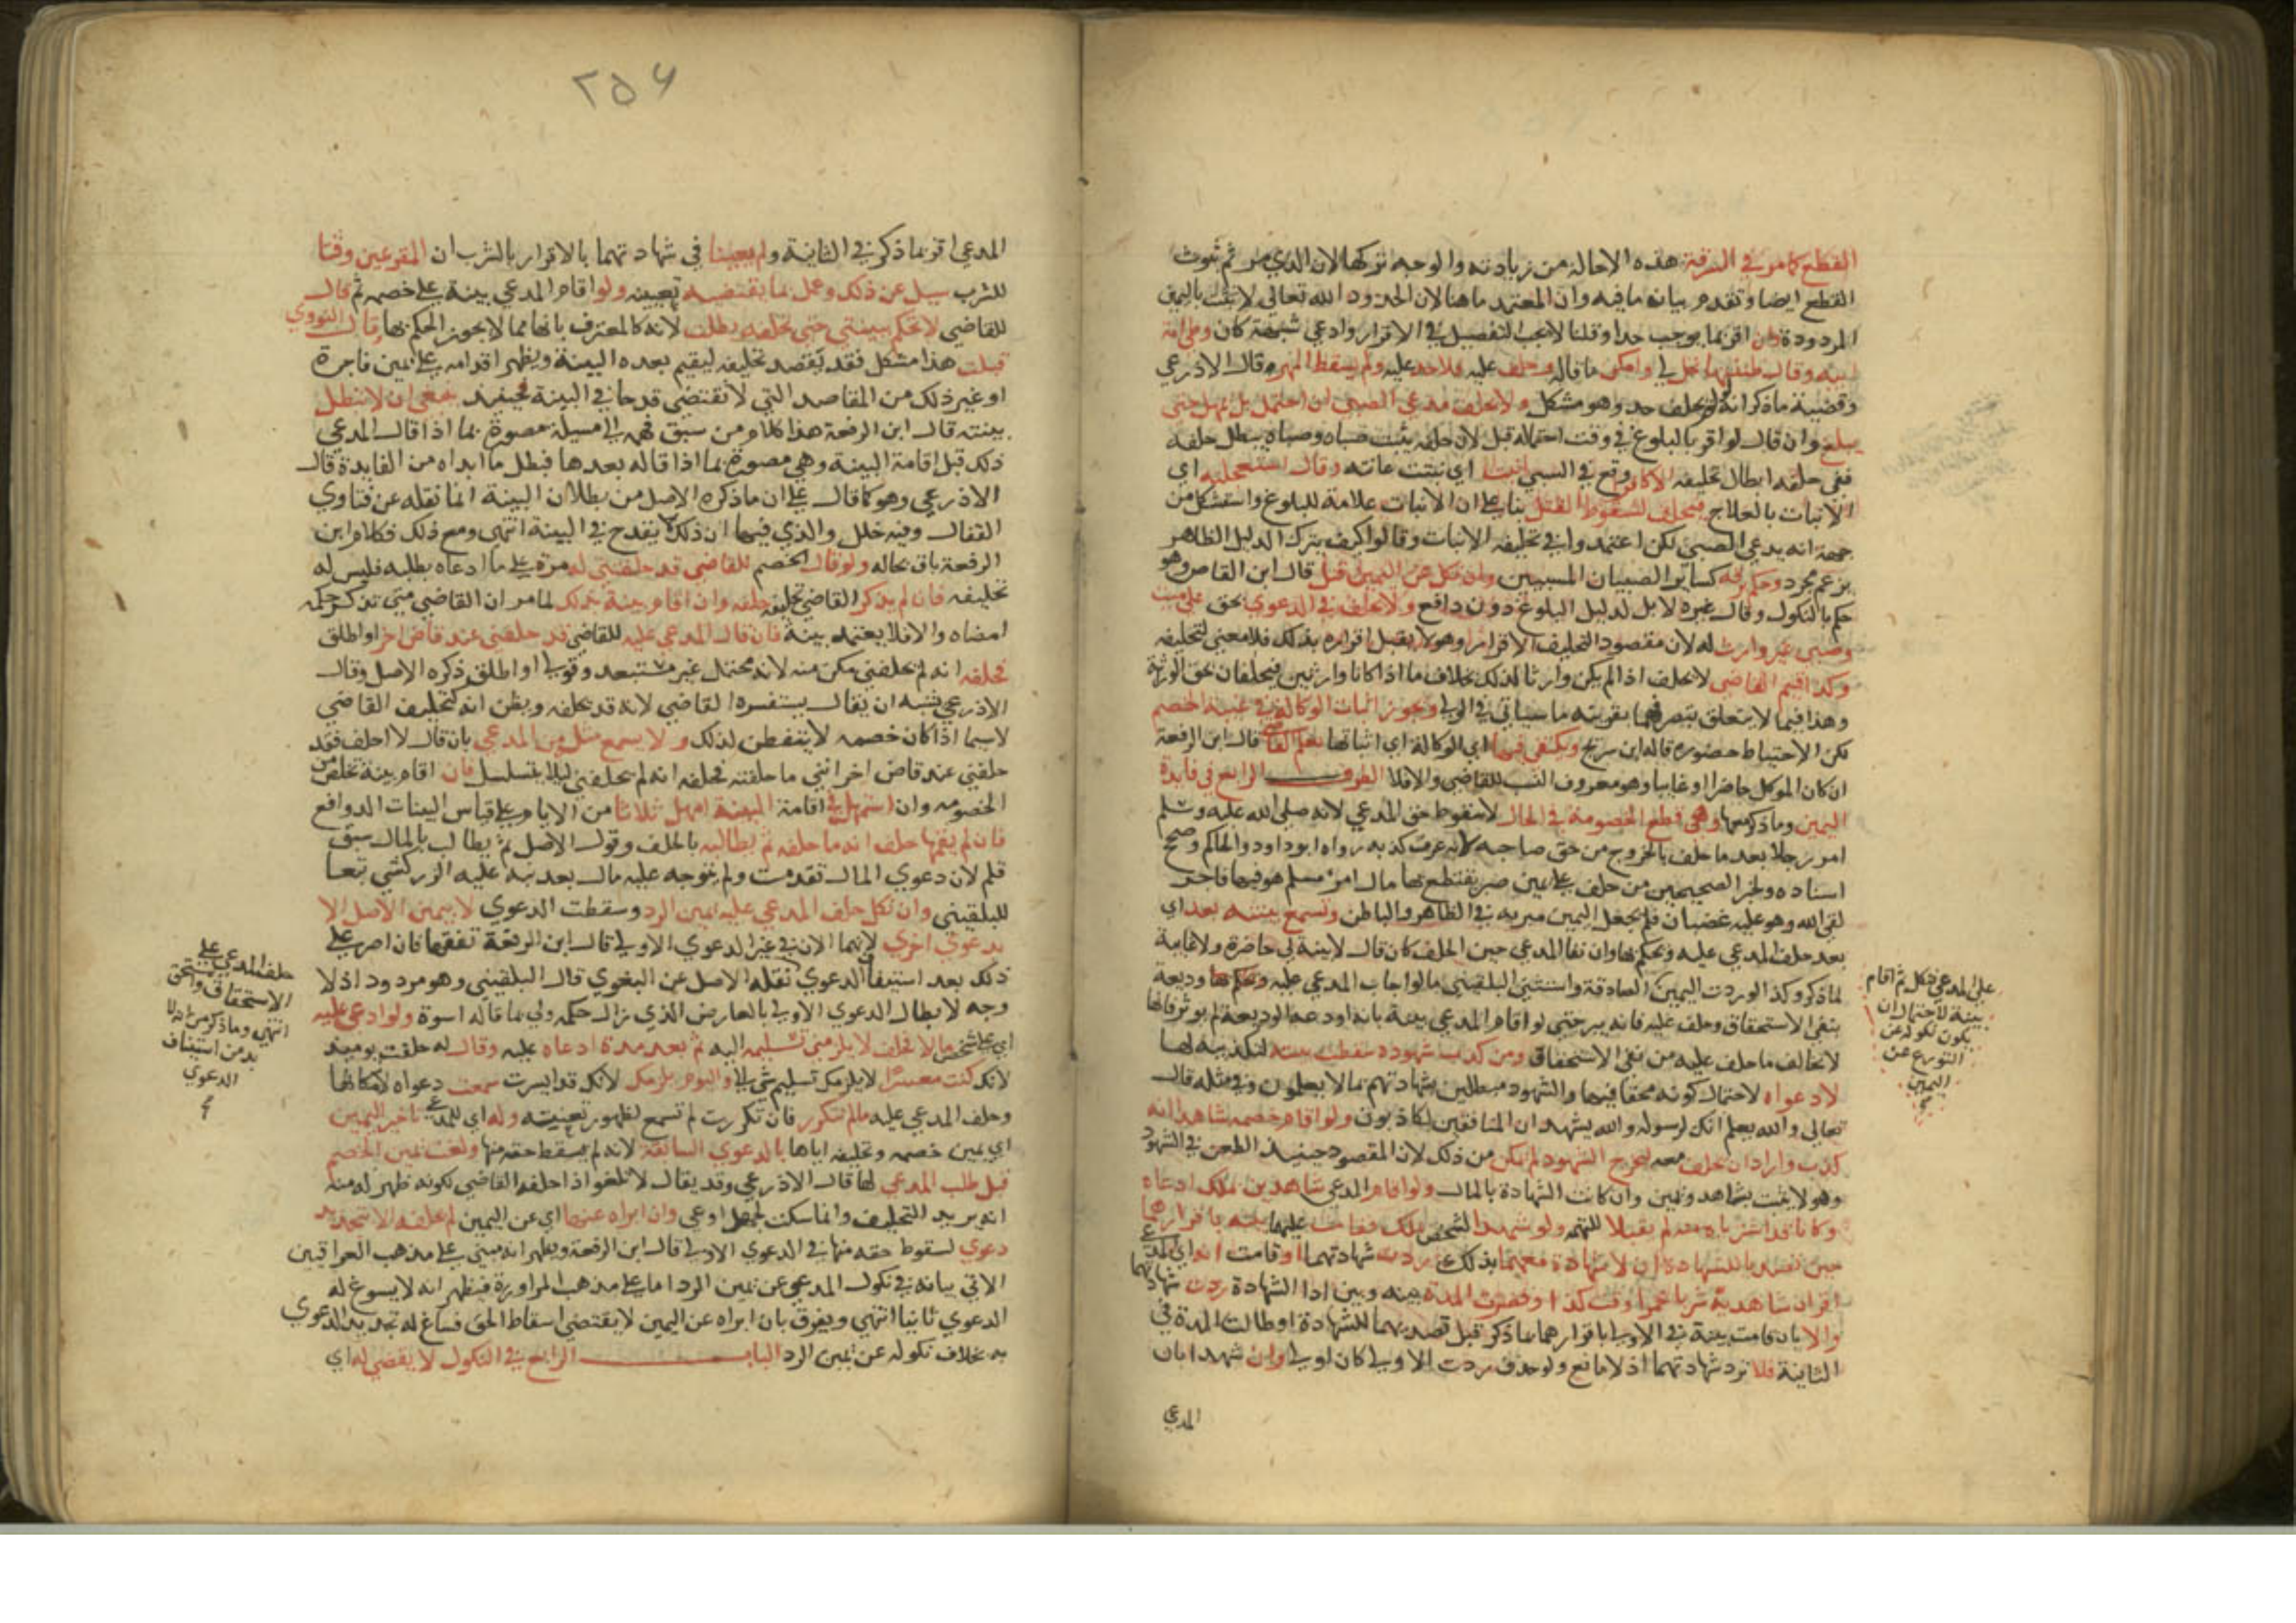 القطع كما مر في السرقة هذه الاحالة من زيادته والوجه تركها لان الذي مر ثم ثبوت
القطع ايضا وتقدم بيان ما فيه وان المعتمد ما هنا لان الحدود الله تعالى لا تثبت باليمين
المردودة وان اقر بما يوجب حدا وقلنا لا يجب التفصيل في الاقرار وادعى شبهة كان وطئ امة
ابيه وقال ظننتها تحل لي وامكن ما قاله وحلف عليه فلا حد عليه ولم يسقط المهر قال الاذرعي
وقضية ما ذكر انه لو لم يحلف حد وهو مشكل ولا يحلف مدعي الصبى ان احتمل بل يمهل حتى
يبلغ وان قال لو اقر بالبلوغ في وقت احتماله قبل لان حلفه يثبت صباه وصباه يبطل حلفه
ففي حلفه ابطال تحليفه الا كافر وقع في السبي انبت اي نبتت عانته وقال استعجلته اي
الانبات بالعلاج فيحلف لسقوط القتل بنا على ان الانبات علامة للبلوغ واستشكل من
جهة انه يدعي الصبى لكن اعتمدوا في تحليفه الانبات وقالوا كيف يترك الدليل الظاهر
بزعم مجرد وحكم رقه كساير الصبيان المسبيين وان نكل عن اليمين قتل قال ابن القاص وهو
حكم بالنكول وقال غيره لا بل لدليل البلوغ دون دافع ولا يحلف في الدعوى بحق على ميت
وصي غير وارث له لان مقصود التحليف الاقرار وهو لا يقبل اقراره بذلك فلا معنى لتحليفه
وكذا قيم القاضي لا يحلف اذا لم يكن وارثا لذلك بخلاف ما اذا كانا وارثين فيحلفان بحق الوراثة
وهذا فيما لا يتعلق بتصرفهما بقرينة ما سياتي في الولي وتجوز اثبات الوكالة في غيبة الخصم
لكن الاحتياط حضوره قاله ابن سريج ويكتفى فيها اي الوكالة اي اثباتها بعلم القاضي قال ابن الرفعة
ان كان الموكل حاضرا او غايبا وهو معروف النسب للقاضي والا فلا الطرف الرابع في فايدة
اليمين وما ذكر معها وهي قطع الخصومة في الحال لا سقوط حق المدعي لانه صلى الله عليه وسلم
امر رجلا بعد ما حلف بالخروج من حق صاحبه كانه عرف كذبه رواه ابو داود والحاكم وصحح
اسناده ولخبر الصحيحين من حلف على يمين صبر يقتطع بها مال امرئ مسلم هو فيها فاجر
لقي الله وهو عليه غضبان فلم يجعل اليمين مبرية في الظاهر والباطن وتسمع بينته بعد اي
بعد حلف المدعى عليه ويحكم بها وان نفا المدعي حين الحلف كان قال لا بينة لي حاضرة ولا غايبة
لما ذكر وكذا لو ردت اليمين الصادقة واستثنى البلقيني ما لو اجاب المدعى عليه وديعة
بنفي الاستحقاق وحلف عليه فانه يبر حتى لو اقام المدعي بينة بانه اودعه الوديعة لم يوثر فانها
لا تخالف ما حلف عليه من نفي الاستحقاق ومن كذب شهوده سقطت بينته لتكذيبه لها
لا دعواه لاحتمال كونه محقا فيها والشهود مبطلين بشهادتهم بما لا يعلمون وفي مثله قال
تعالى والله يعلم انك لرسوله والله يشهد ان المنافقين لكاذبون ولو اقام خصمه شاهدا انه
كذب واراد ان يحلف معه لجرح الشهود لم يمكن من ذلك لان المقصود حينيذ الطعن في الشهود
وهو لا يثبت بشاهد ويمين وان كانت الشهادة بالمال ولو اقام المدعي شاهدين بملك ادعاه
وكانا قد اشترياه منه لم يقبلا للتهمة ولو شهدا لشخص بملك فقامت عليهما بينة باقرارهما
حين تصديا للشهادة ان لا شهادة معهما بذلك ردت شهادتهما او قامت انه اي المدعي
اقر ان شاهديه شربا خمرا وقت كذا وقصرت المدة بينه وبين اذا الشهادة ردت شهادتهما
والا بان قامت بينة في الاولى باقرارهما بما ذكر قبل تصديهما للشهادة او طالت المدة في
الثانية فلا ترد شهادتهما اذ لا مانع ولو حذف ردت الاولى كان اولى وان شهدا بان
المدعي
على المدعي فنكل ثم اقام
بينة لاحتمال ان
يكون نكوله عن
التورع عن
اليمين
٢٥٦
المدعي اقر بما ذكر في الثانية ولم يعينا في شهادتهما بالاقرار بالشرب ان المقر عين وقتا
للشرب سيل عن ذلك وعمل بما يقتضيه تعيينه ولو اقام المدعي بينة على خصمه ثم قال
للقاضي لا تحكم ببينتي حتى تحلفه بطلت لانه كالمعترف بانها مما لا يجوز الحكم بها قال النووي
قبلت هذا مشكل فقد يقصد تحليفه ليقيم بعده البينة ويظهر اقدامه على يمين فاجرة
او غير ذلك من المقاصد التي لا تقتضي قدحا في البينة فحينيذ ينبغي ان لا تبطل
بينته قال ابن الرفعة هذا كلام من سبق فهمه الى ان المسيلة مصورة بما اذا قال المدعي
ذلك قبل اقامة البينة وهي مصورة بما اذا قاله بعدها فبطل ما ابداه من الفايدة قال
الاذرعي وهو كما قال على ان ما ذكره الاصل من بطلان البينة انما نقله عن فتاوي
القفال وفيه خلل والذي فيها ان ذلك لا يقدح في البينة انتهى ومع ذلك فكلام ابن
الرفعة باق بحاله ولو قال الخصم للقاضي قد حلفتني له مرة على ما ادعاه بطلبه فليس له
تحليفه فان لم يذكر القاضي تحليفه حلفه وان اقام بينة بذلك لما مر ان القاضي متى تذكر حكمه
امضاه والا فلا يعتمد بينة فان قال المدعى عليه للقاضي قد حلفني عند قاض اخر او اطلق
فحلفه انه لم يحلفني مكن منه لانه محتمل غير مستبعد وقولي او اطلق ذكره الاصل وقال
الاذرعي يشبه ان يقال يستفسره القاضي لانه قد يحلفه ويظن انه كتحليف القاضي
لا سيما اذا كان خصمه لا يتفطن لذلك ولا يسمع مثل من المدعي بان قال لا احلف فقد
حلفني عند قاض اخر انني ما حلفته فحلفه انه لم يحلفني ليلا يتسلسل فان اقام بينة تخلص من
الخصومة وان استمهل في اقامة البينة امهل ثلاثا من الايام على قياس البينات الدوافع
فان لم يقمها حلف انه ما حلفه ثم يطالبه بالحلف وقول الاصل ثم يطالب بالمال سبق
قلم لان دعوى المال تقدمت ولم يتوجه عليه مال بعد نبه عليه الزركشي تبعا
للبلقيني وان نكل حلف المدعى عليه يمين الرد وسقطت الدعوى لا يمين الاصل الا
بدعوى اخرى لانهما الان في غير الدعوى الاولى قال ابن الرفعة تفقها فان اصر على
ذلك بعد استيفا الدعوى نقله الاصل عن البغوي قال البلقيني وهو مردود اذ لا
وجه لابطال الدعوى الاولى بالعارض الذي زال حكمه ولي بما قاله اسوة ولو ادعى عليه
اي على شخص مالا فحلف لا يلزمني تسليمه اليه ثم بعد مدة ادعاه عليه وقال له حلفت يوميذ
لانك كنت معسرا لا يلزمك تسليم شي لي واليوم يلزمك لانك قد ايسرت سمعت دعواه لامكانها
وحلف المدعى عليه ما لم تتكرر فان تكررت لم تسمع لظهور تعنيته وله اي للمدعي تاخير اليمين
اي يمين خصمه وتحليفه اياها بالدعوى السابقة لانه لم يسقط حقه منها ولغت يمين الخصم
قبل طلب المدعي لها قال الاذرعي وقد يقال لا تلغو اذا حلفه القاضي لكونه ظهر له منه
انه يريد التحليف وانما سكت لجهل او عي وان ابراه عنها اي عن اليمين لم يحلفه الا بتجديد
دعوى لسقوط حقه منها في الدعوى الاولى قال ابن الرفعة ويظهر انه مبني على مذهب العراقيين
الاتي بيانه في نكول المدعي عن يمين الرد اما على مذهب المراوزة فيظهر انه لا يسوغ له
الدعوى ثانيا انتهى ويفرق بان ابراه عن اليمين لا يقتضي اسقاط الحق فساغ له تجديد الدعوى
به بخلاف نكوله عن يمين الرد الباب الرابع في النكول لا يقضى له اي
حلف المدعي على
الاستحقاق واستحق
انتهى وما ذكر من انه لا
بد من استيناف
الدعوى